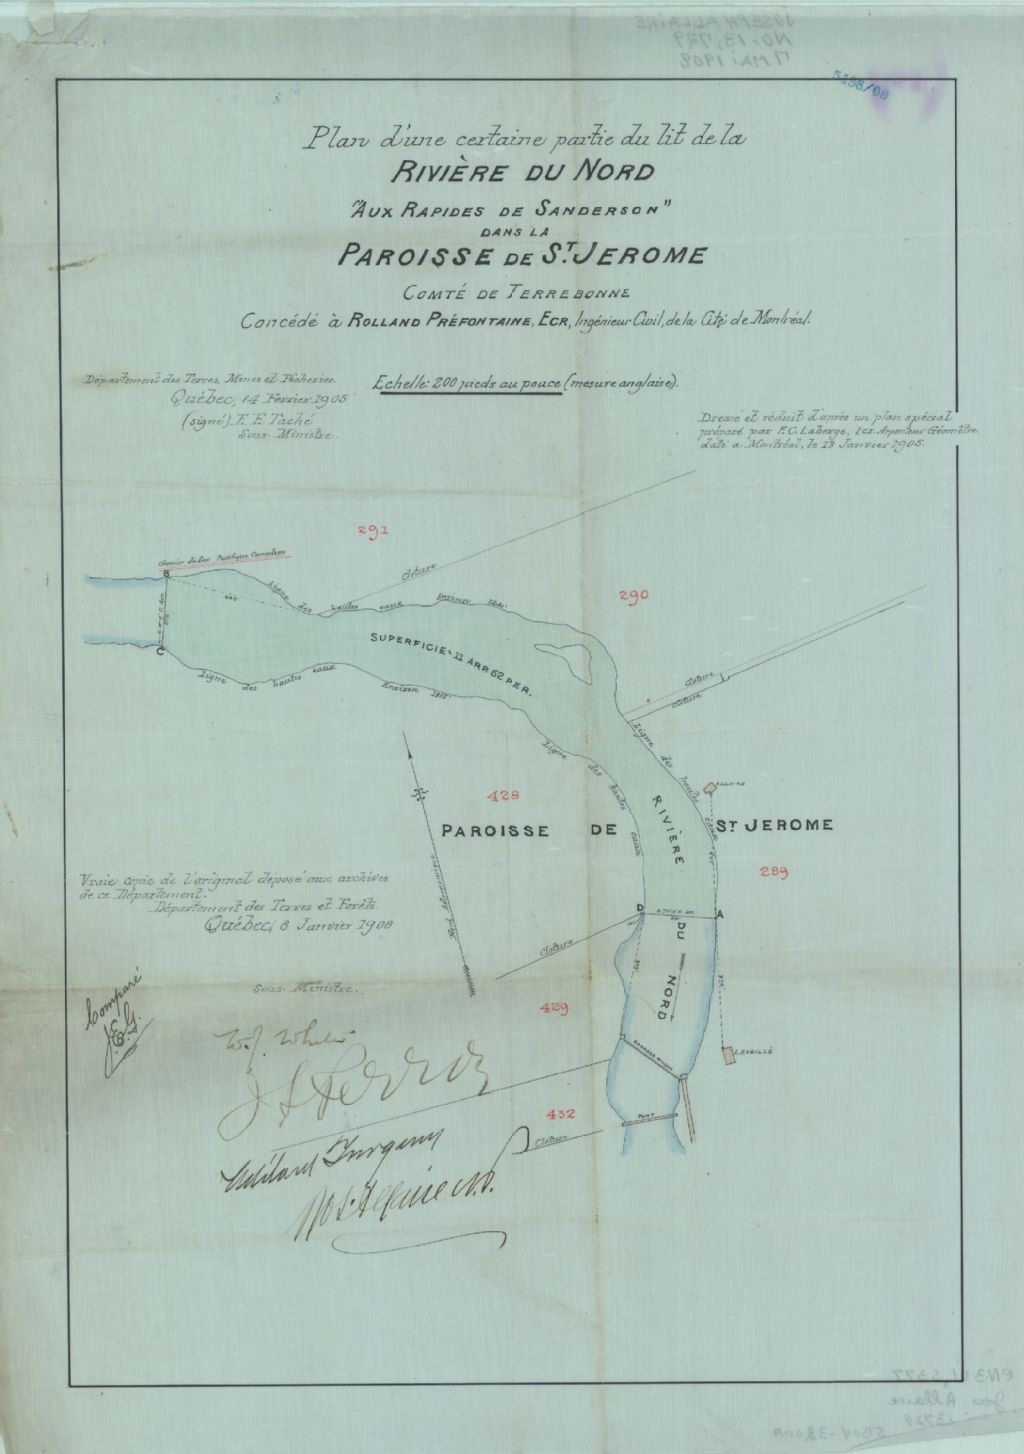 5488/08
Plan d'une certaine partie du lit de la
RIVIÈRE DU NORD
"AUX RAPIDES DE SANDERSON"
DANS LA
PAROISSE DE ST. JEROME
COMTÉ DE TERREBONNE
Concédé à ROLLAND PRÉFONTAINE, ECR, Ingénieur Civil, de la Cité de Montréal.
Département des Terres, Mines et Pêcheries.
Québec, 14 Février 1905
(signé) E. E. Taché
Sous-Ministre.
Echelle: 200 pieds au pouce (mesure anglaise).
Dressé et réduit d'après un plan spécial
préparé par F.C. Laberge, Ecr. Arpenteur Géomètre
daté a Montréal, le 13 Janvier 1905.
291
Chemin de fer Pacifique Canadien
B
Cloture
Ligne des hautes eaux Environ
290
SUPERFICIE = 11 ARP. 62 PER.
C
Ligne des hautes eaux Environ
Cloture
Cloture
Ligne des hautes eaux
Ligne des hautes eaux
ALLAIRE
428
RIVIÈRE
PAROISSE DE ST JEROME
289
Vraie copie de l'original déposé aux archives
de ce Département.
Département des Terres et Forêts
Québec, 8 Janvier 1908
D
A
DU NORD
Cloture
Sous-Ministre.
429
Comparé
J.E.G.
LEVEILLÉ
432
PONT
Cloture